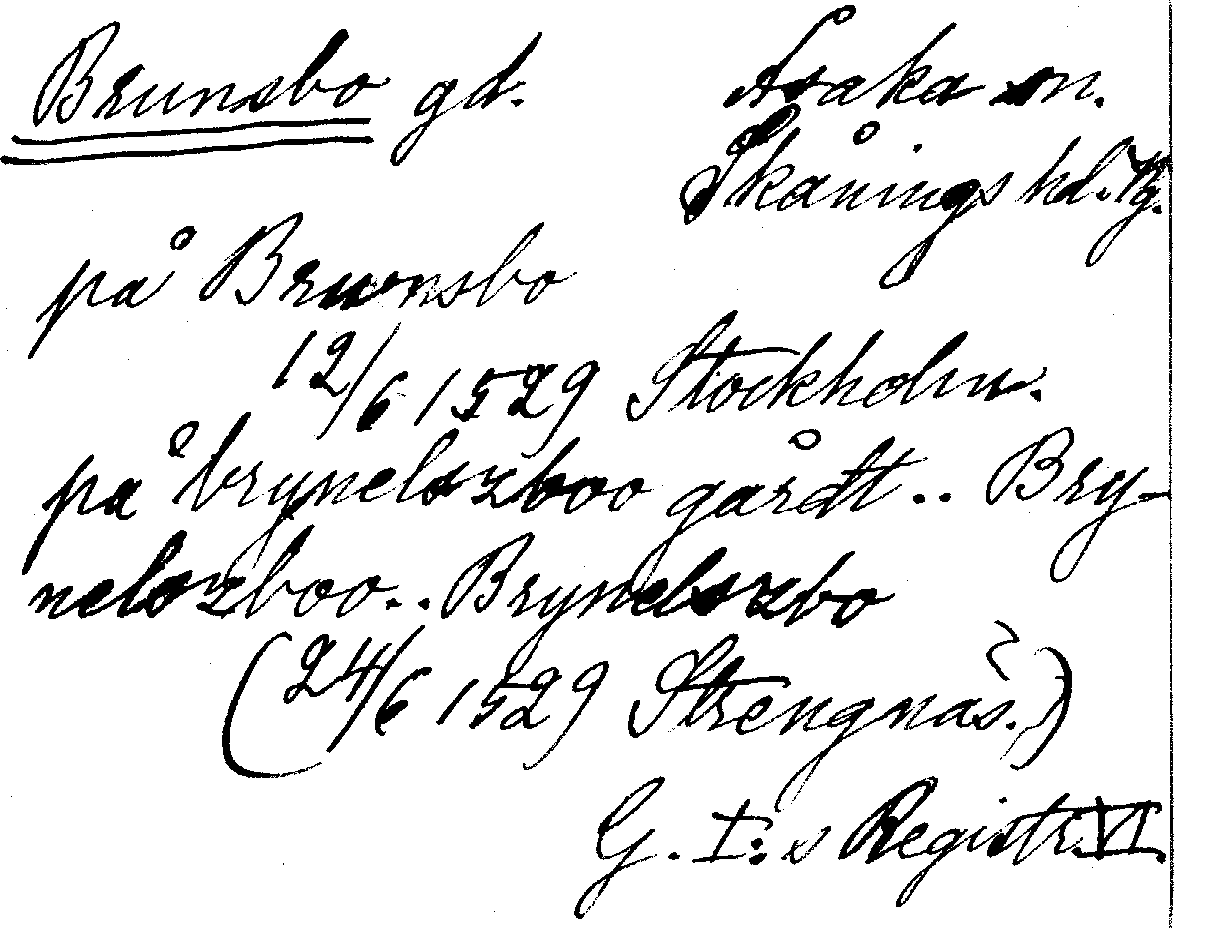 Brunsbo gd. Asaka sn.
Skånings hd. Vg.
på Brunsbo
12/6 1529 Stockholm.
på brynelszboo gårdt .. Bry-
nelszboo .. Brynelszbo
(24/6 1529 Strengnäs.)
G. I:s Registr. VI.